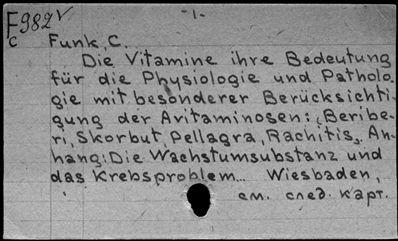 F982 V
C
-1-
Funk, C.
Die Vitamine ihre Bedeutung
für die Physiologie und Patholo-
gie mit besonderer Berücksichti-
gung der Avitaminosen: (Beribe-
ri, Skorbut, Pellagra, Rachitis). An-
hang: Die Wachstumsubstanz und
das Krebsproblem... Wiesbaden,
см. след. карт.